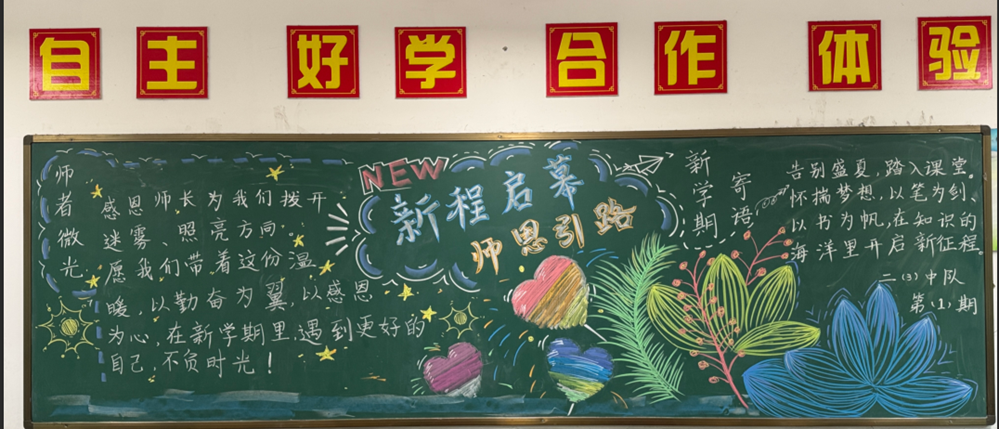 自主 好学 合作 体验
师者微光
感恩师长为我们拨开
迷雾、照亮方向。
愿我们带着这份温
暖,以勤奋为翼,以感恩
为心,在新学期里,遇到更好的
自己,不负时光!
NEW
新程启幕
师恩引路
新学期
寄语
告别盛夏,踏入课堂。
怀揣梦想,以笔为剑、
以书为帆,在知识的
海洋里开启新征程
二(3)中队
第(1)期